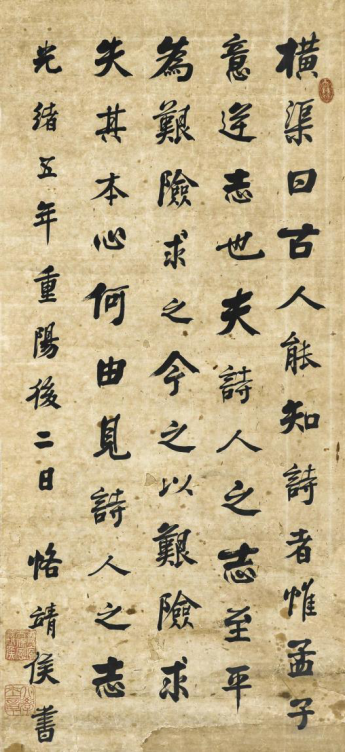 橫渠曰古人能知詩者惟孟子
意逆志也夫詩人之志至平
為艱險求之今之以艱險求
失其本心何由見詩人之志
光緒五年重陽後二日 恪靖侯書